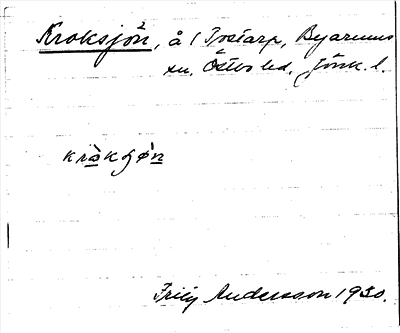 Kroksjön², å (Tostarp, Byarums
sn. Östbo hd. Jönk. l.
kràkʃøn
Frity Andersson 1930.